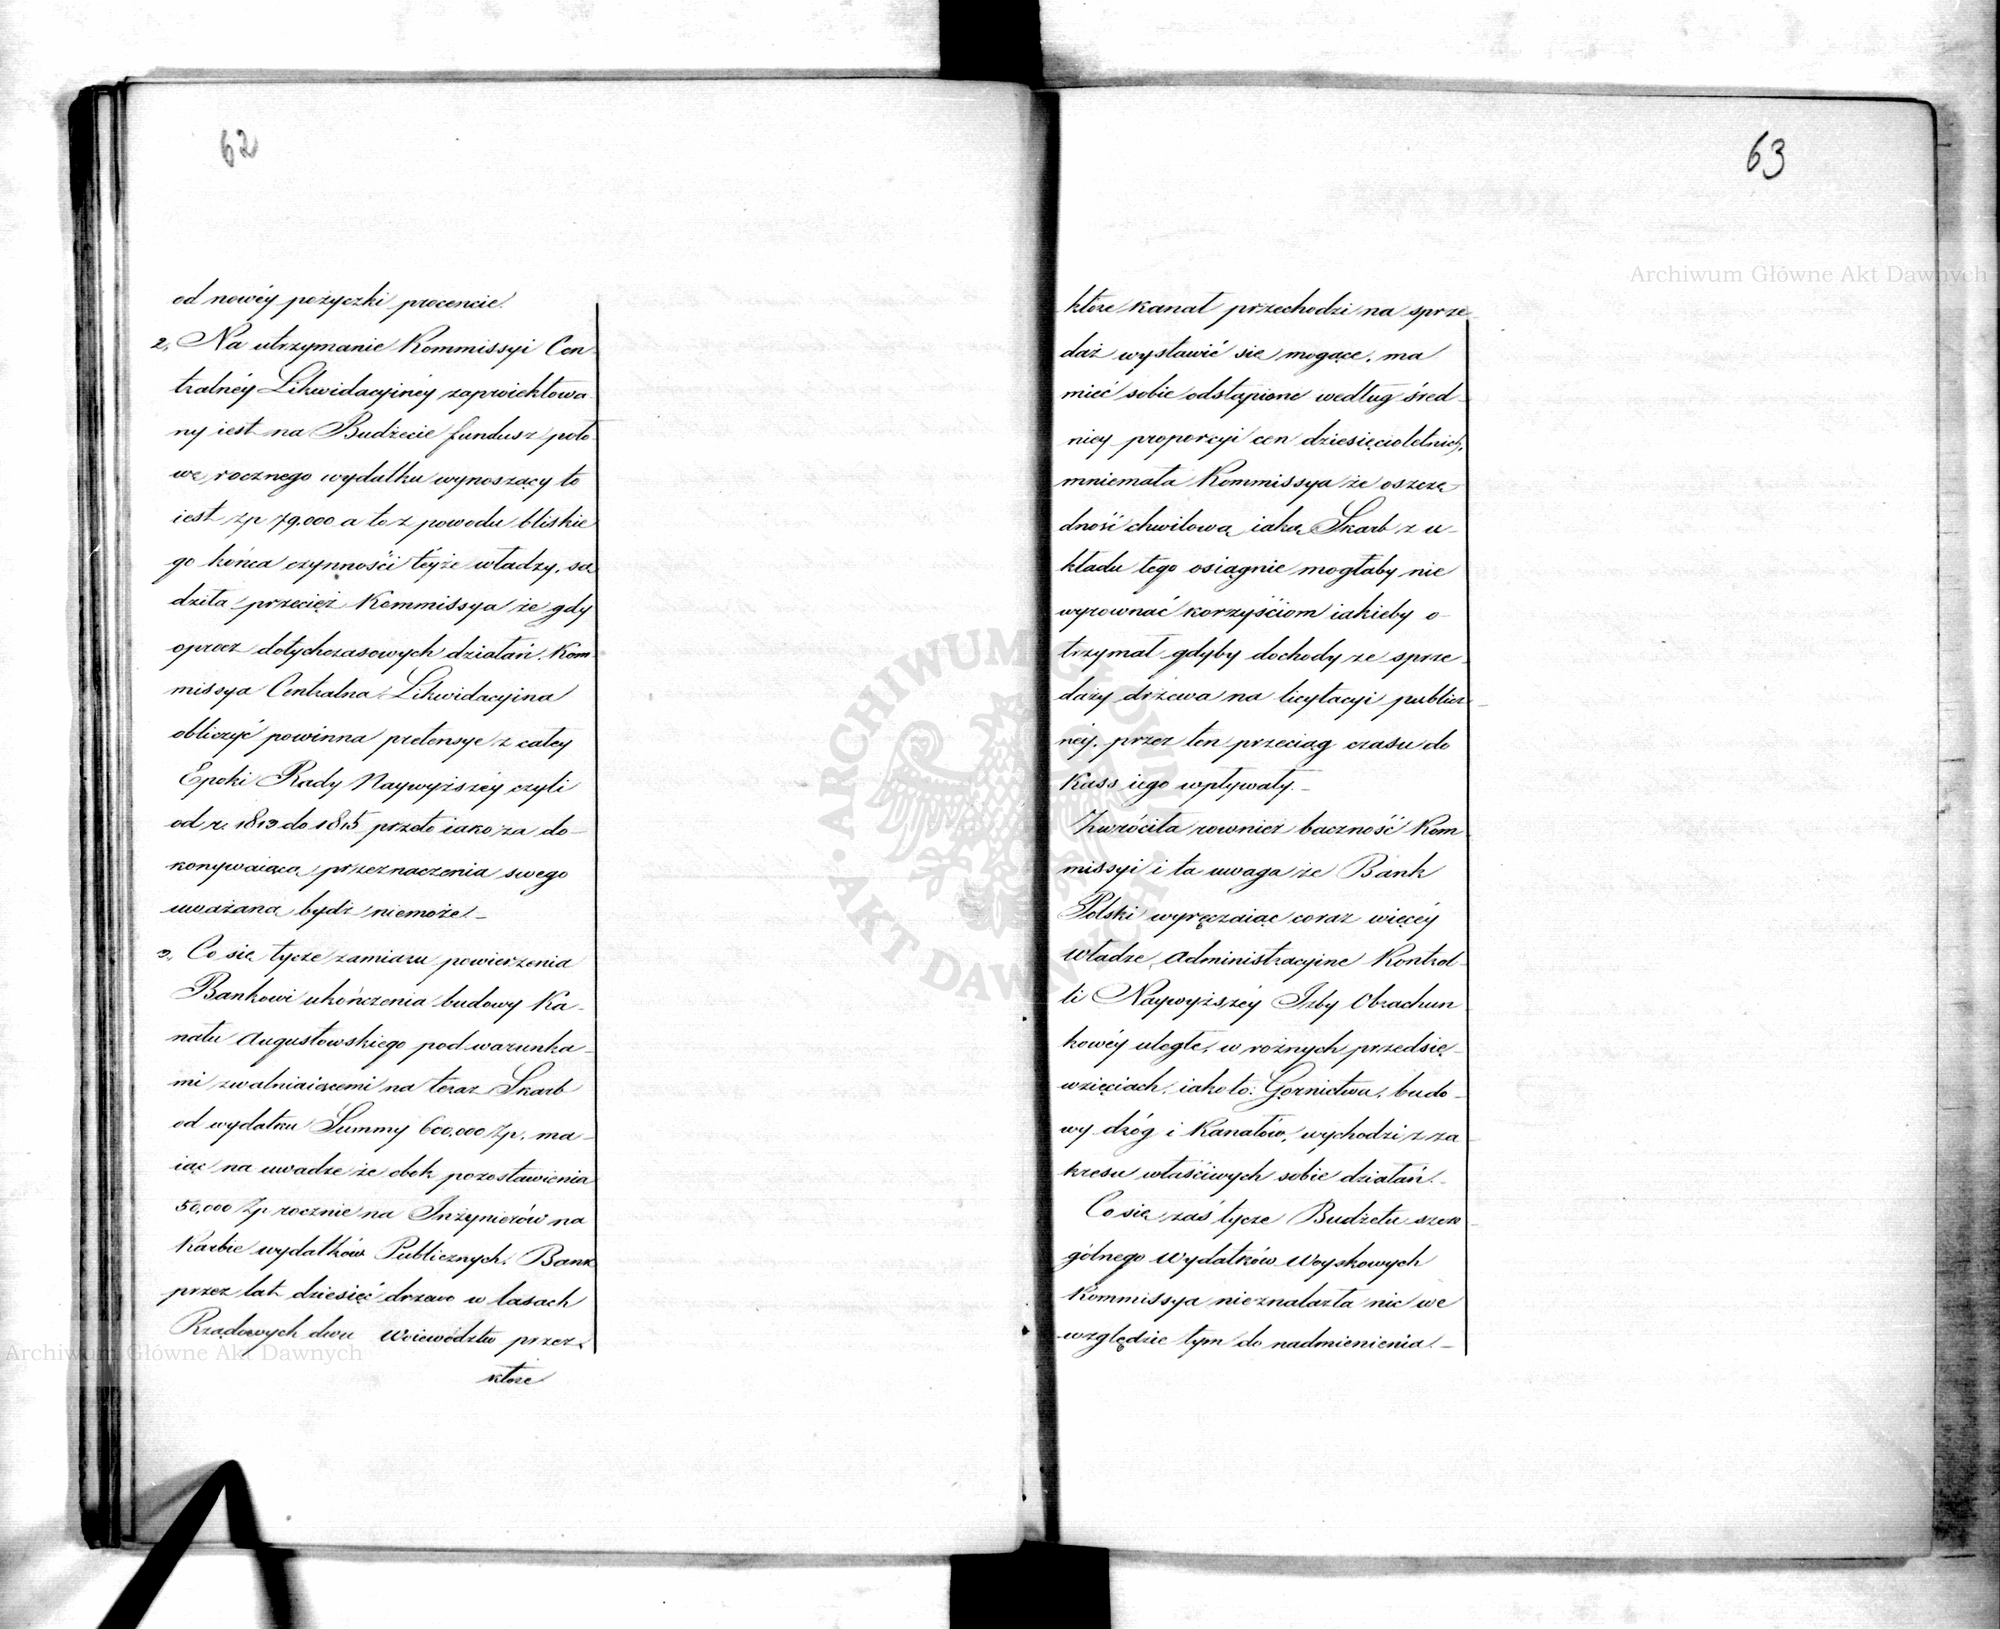 62
od nowéy pożyczki procencie.
2, Na utrzymanie Kommissyi Cen-
tralnéy Likwidacyjnéy zaproiektowa-
ny iest na Budżecie fundusz poło-
wę rocznego wydatku wynoszący to
iest zp 79,000 a to z powodu bliskie
go końca czynności téyże władzy, są
dziła przecięż Kommissya że gdy
oprocz dotychczasowych działań, Kom-
missya Centralna Likwidacyjna
obliczyć powinna pretensye z całey
Epoki Rady Naywyższéy czyli
od r. 1813 do 1815 przeto iako za do-
konywaiąca przeznaczenia swego
uważaną bydź niemoże.-
3, Co się tycze zamiaru powierzenia
Bankowi ukończenia budowy Ka-
nału Augustowskiego pod warunka-
mi zwalniaiącemi na teraz Skarb
od wydatku Summy 600,000 Zp. ma-
iąc na uwadze że obok pozostawienia
50,000 Zp rocznie na Inżynierów na
Karbie wydatków Publicznych, Bank
przez lat dziesięć drzewo w lasach
Rządowych dwu Woiewództw przez
które
63
Archiwum Główne Akt Dawnych
które kanał przechodzi na sprze-
daż wystawić się mogące, ma
mieć sobie odstąpione według śred-
niey proporcyi cen dziesięcioletnich,
mniemała Kommissya że oszczę-
dność chwilowa iaką Skarb z u-
kładu tego osiągnie mogłaby nie
wyrownać korzyściom iakieby o-
trzymał gdyby dochody ze sprze-
daży drzewa na licytacyi publicz-
néy, przez ten przeciąg czasu do
Kass iego wpływały.-
Zwróciła rownież baczność Kom-
missyi i ta uwaga że Bank
Polski wyręczaiąc coraz więcéy
Władze Administracyjne Kontrol-
li Naywyższéy Izby Obrachun-
kowéy uległe, w rożnych przedsię-
wzięciach, iako to: Gornictwu, budo-
wy dróg i Kanałów, wychodzi z za
kresu właściwych sobie działań.-
Co się zaś tycze Budżetu szcze-
gólnego Wydatków Woyskowych
Kommissya nieznalazła nic we
względzie tym do nadmienienia.-
Archiwum Główne Akt Dawnych
ARCHIWUM GŁÓWNE AKT DAWNYCH